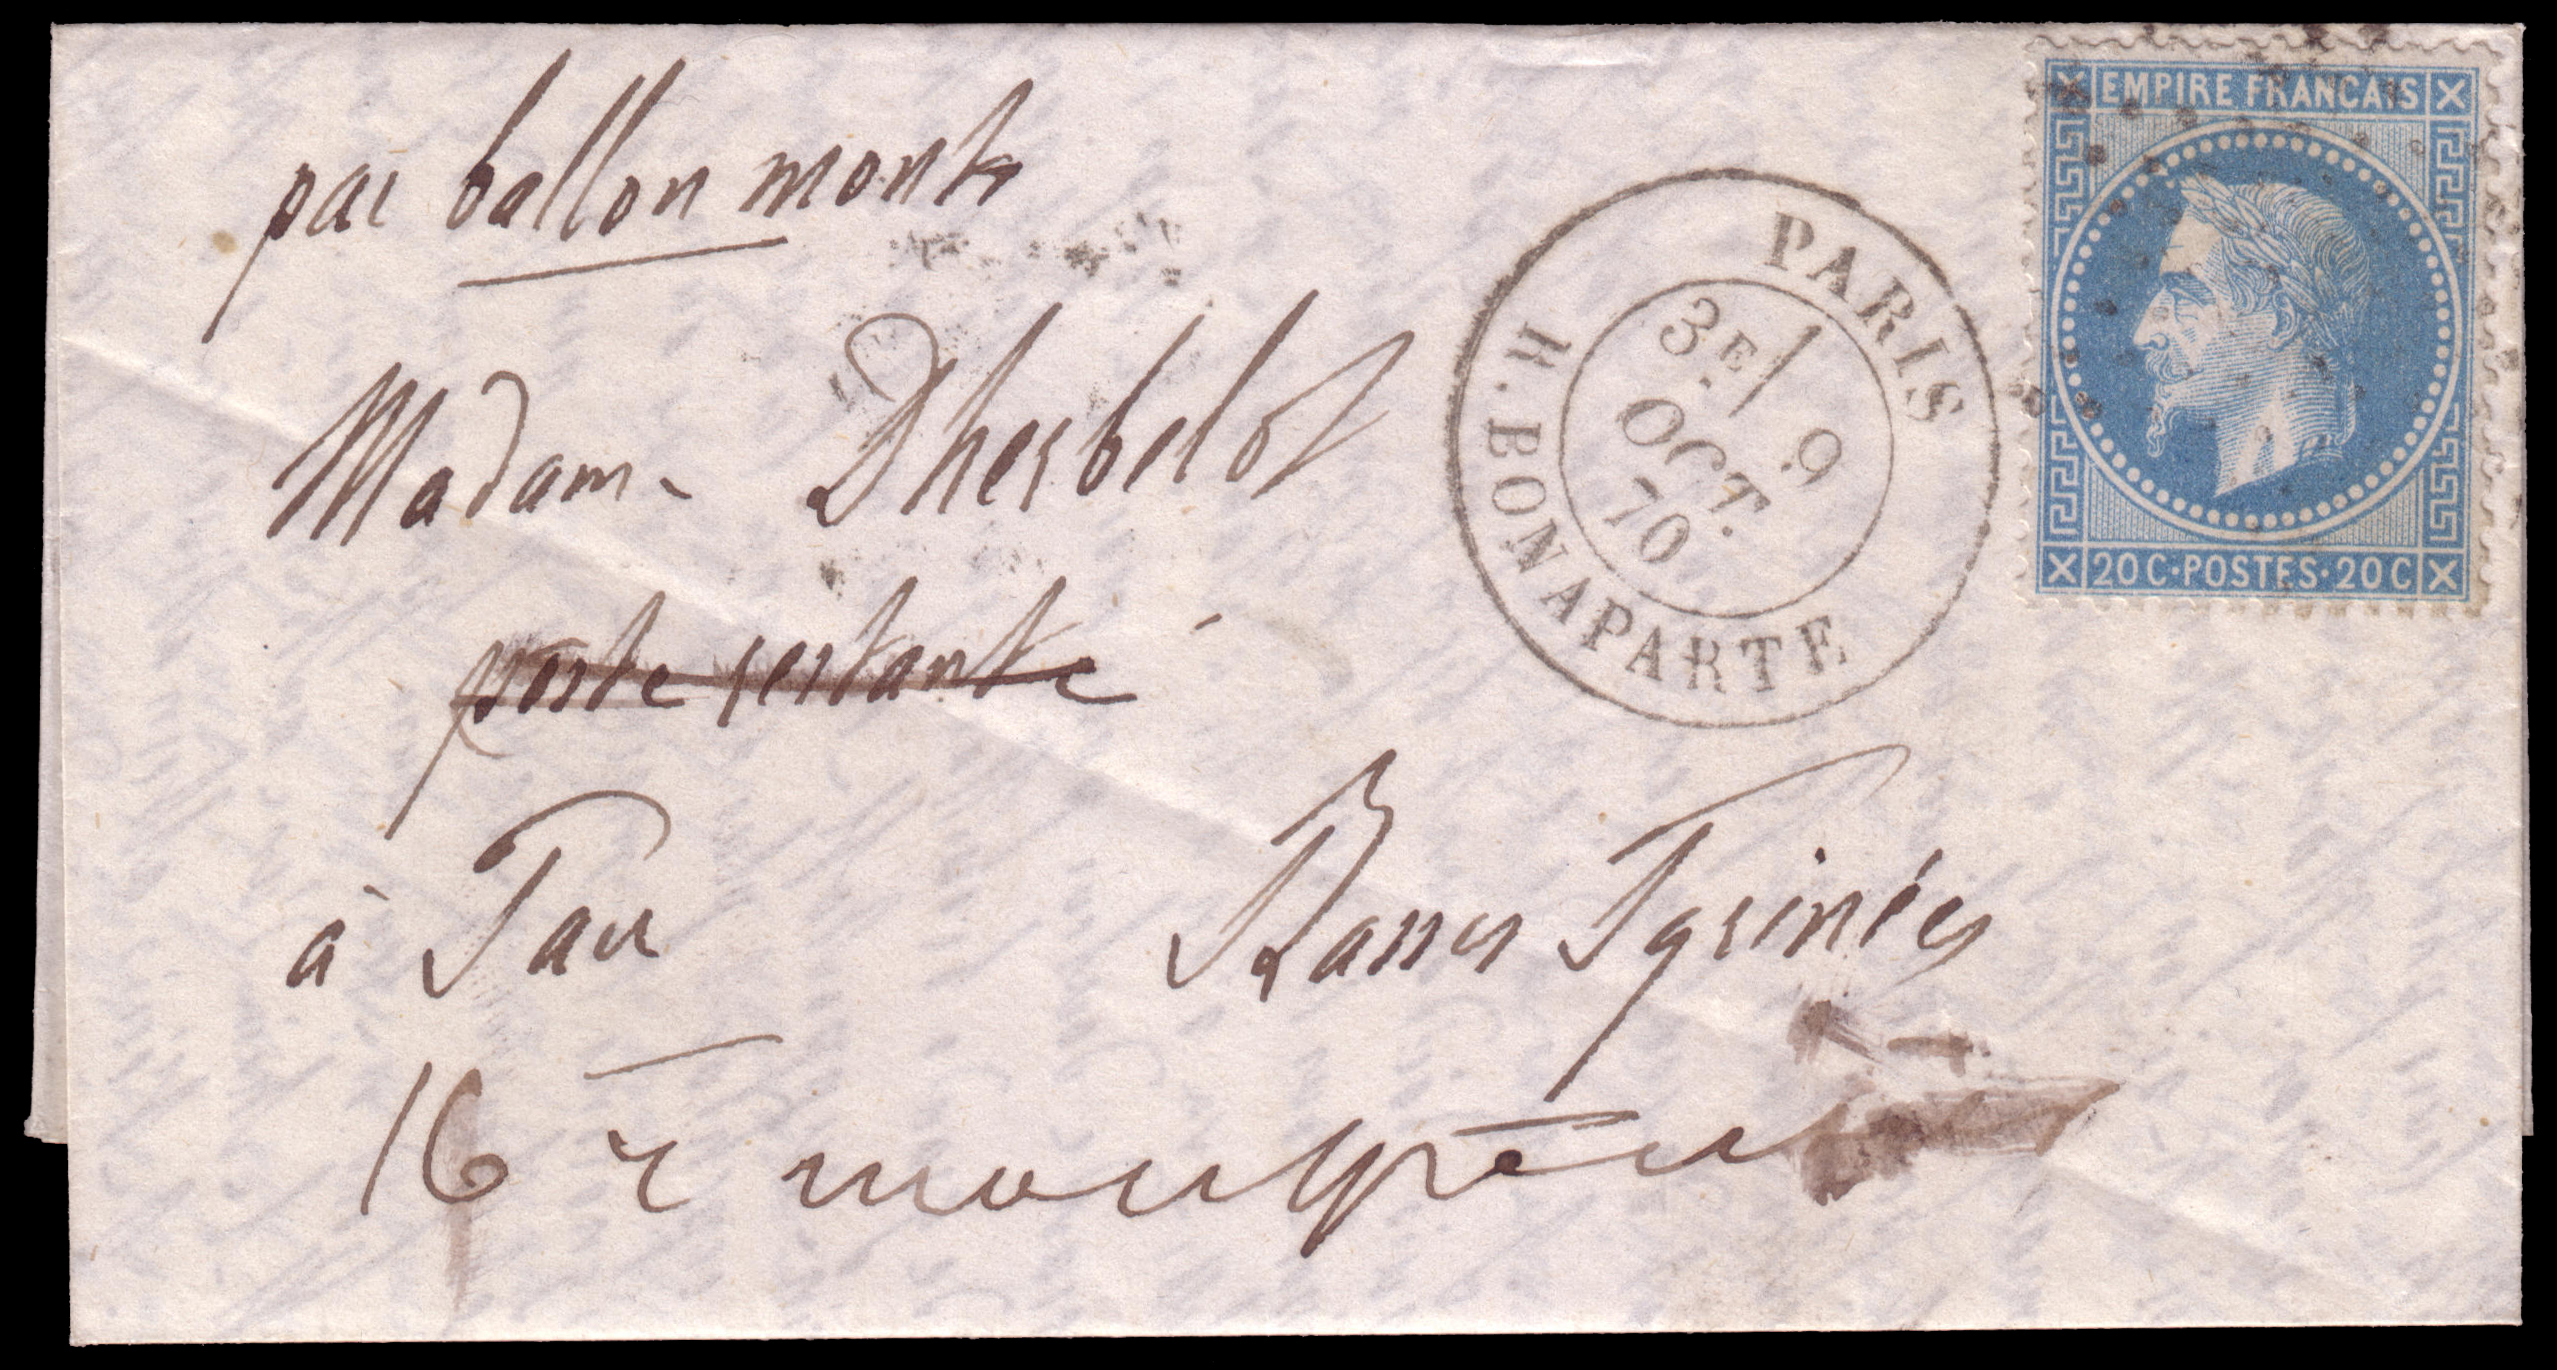 par ballon monté
EMPIRE FRANCAIS
20 C·POSTES·20 C
PARIS
3E/ 9
OCT.
70
R. BONAPARTE
Madame Dherbelot
poste restante
à Pau Basses Pyrinées
16 r